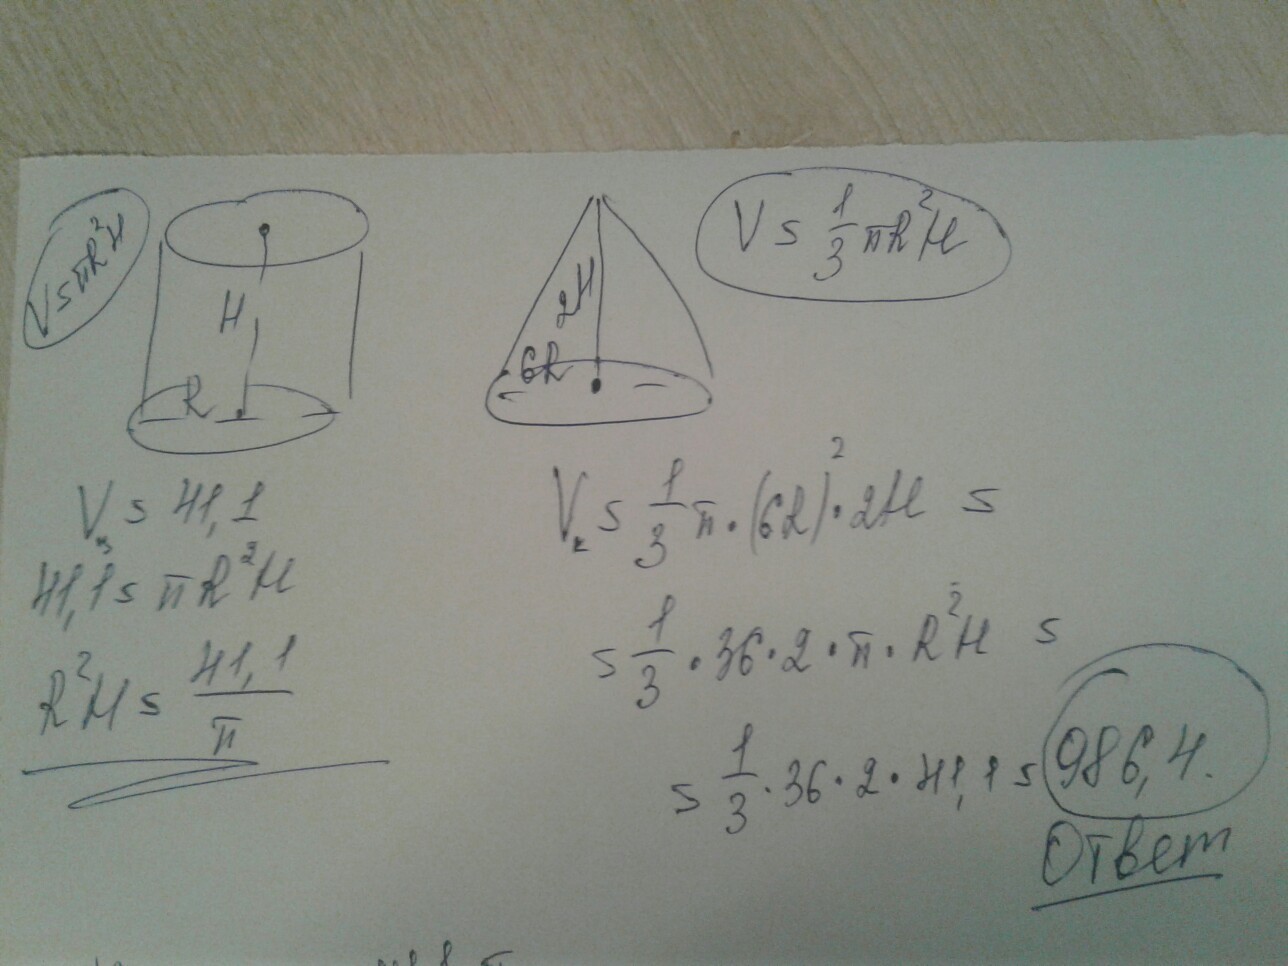 V = πR²H
H
R
2H
6R
V = 1/3 πR²H
Vц = 41,1
41,1 = πR²H
R²H = 41,1/π
Vк = 1/3 π · (6R)² · 2H =
= 1/3 · 36 · 2 · π · R²H =
= 1/3 · 36 · 2 · 41,1 = 986,4.
Ответ